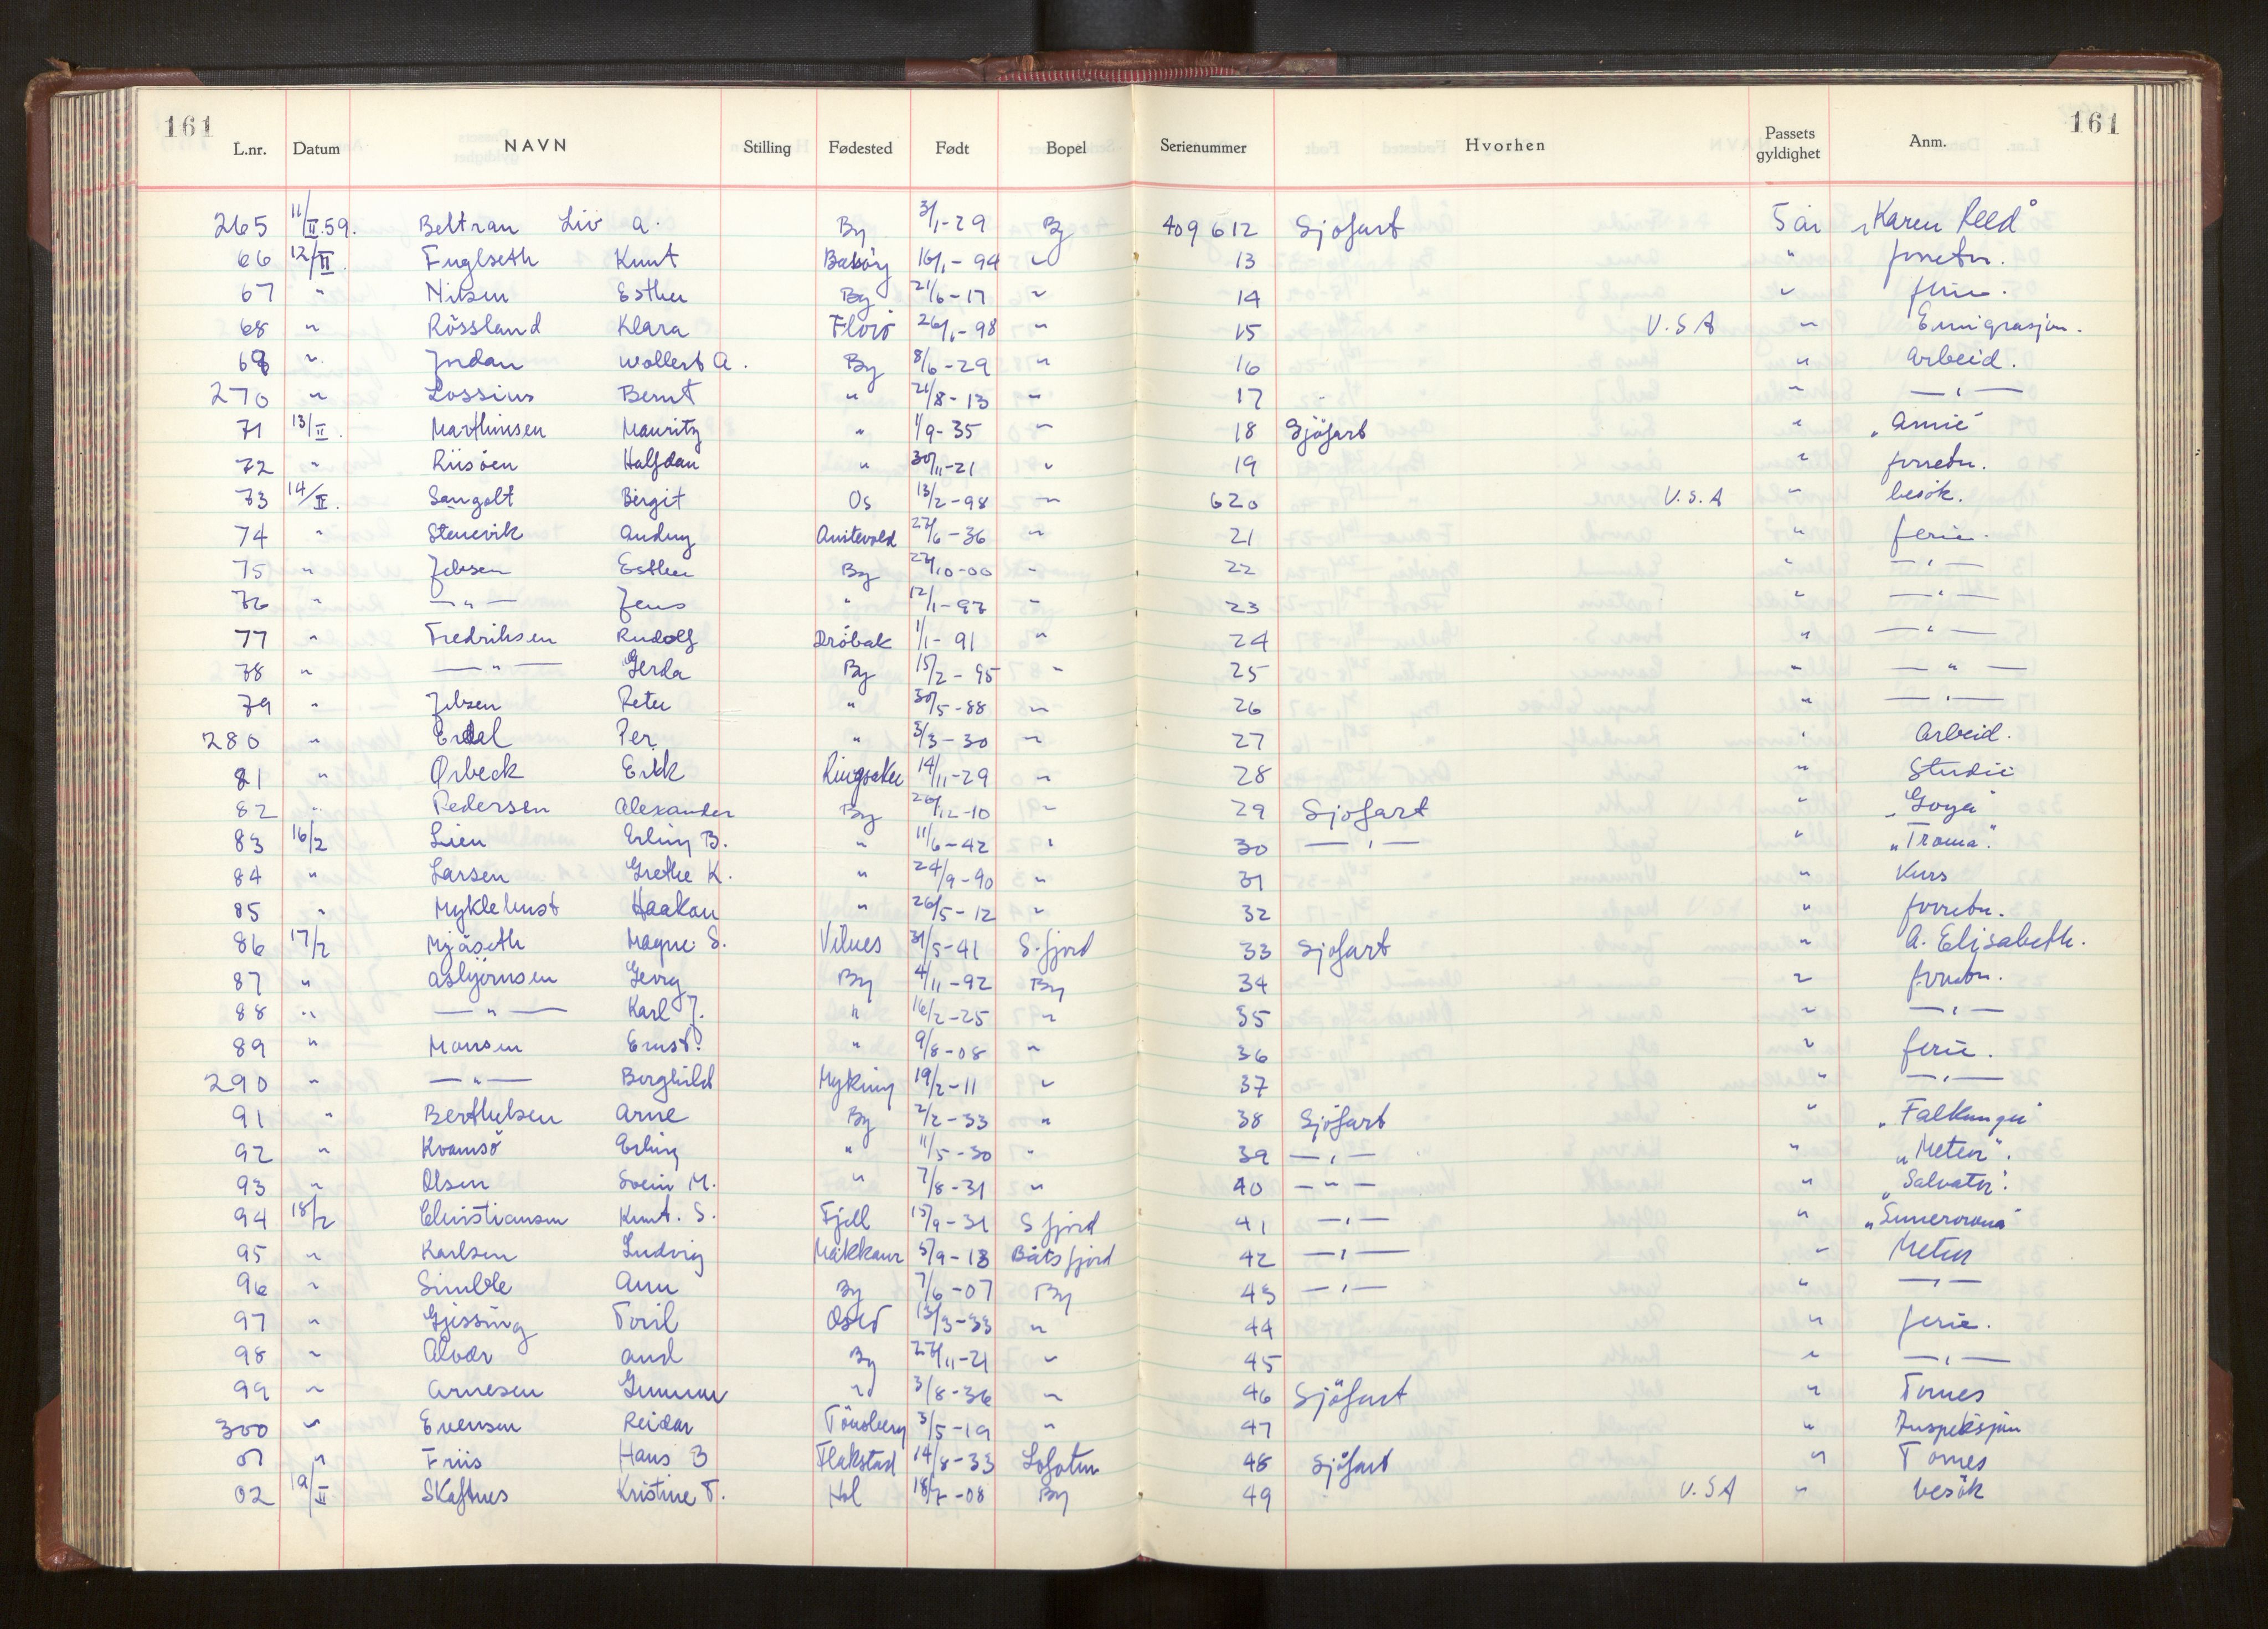 161 161
L.nr. Datum NAVN Stilling Fødested Født Bopel Serienummer Hvorhen Passets gyldighet Anm.
265 11/II.59. Beltran Liv A. By 3/1-29 By 409 612 Sjöfart 5 år "Karen Reed"
66 12/II. Fuglseth Knut 16/1-94 " 13 " forretn.
67 " Nilsen Esther By 21/6-17 " 14 " ferie.
68 " Rössland Klara Florö 26/1-98 " 15 U.S.A " Emigrasjon.
69 " Jordan Wollert A. By 8/6-29 " 16 " Arbeid.
270 " Lossius Bernt " 21/8-13 " 17 " — " —
71 13/II. Marthinsen Mauritz " 1/9-35 " 18 Sjöfart "
72 " Riisöen Halfdan " 30/11-21 " 19 " forretn.
73 14/II. Sangolt Birgit Os 13/2-98 " 620 U.S.A " besök.
74 " Stenevik Audny Austevold 27/6-36 " 21 " ferie.
75 " Jebsen Esther By 27/10-00 " 22 " — " —
76 " — " — Jens " 12/1-97 " 23 " — " —
77 " Fredriksen Rudolf Dröbak 1/1-91 " 24 " — " —
78 " — " — Gerda By 15/2-95 " 25 " — " —
79 " Jebsen Peter " 30/5-88 " 26 " — " —
280 " Erdal Per " 3/3-30 " 27 " Arbeid.
81 " Ørbeck Erik Ringsaker 14/11-29 " 28 " Studie
82 " Pedersen Alexander By 26/12-10 " 29 Sjöfart " "Goya"
83 16/2 Lien Erling B. " 11/6-42 " 30 — " — " "Troma".
84 " Larsen Grethe K. " 24/9-90 " 31 " Kurs
85 " Myklebust Haakon " 26/5-12 " 32 " forretn.
86 17/2 Mjåseth Magne S. Vilnes 31/5-41 S. fjord 33 Sjöfart " A. Elisabeth.
87 " Asbjörnsen Georg By 4/11-92 By 34 " forretn.
88 " — " — Karl J. " 16/2-25 " 35 " — " —
89 " Monsen Ernst. " 9/8-08 " 36 " ferie.
290 " — " — Borghild Myking 19/2-11 " 37 " — " —
91 " Berthelsen Arne By 2/2-33 " 38 Sjöfart "
92 " Kvamsö Erling " 11/5-30 " 39 — " — " "Meteor".
93 " Olsen Svein M. " 7/8-31 " 40 — " — " "Salvator".
94 18/2 Christiansen Knut. S. Fjell 15/9-31 S fjord 41 — " — "
95 " Karlsen Ludvig Makkaur 5/9-13 Båtsfjord 42 — " — " Meteor
96 " Ann By 7/6-07 By 43 — " — " — " —
97 " Gjessing Toril Oslo 13/3-33 " 44 " ferie.
98 " Alvær Aud By 27/11-21 " 45 " — " —
99 " Arnesen Gunnar " 3/8-36 " 46 Sjöfart " Tornes
300 " Evensen Reidar Tönsberg 3/5-19 " 47 " Inspeksjon
01 " Friis Hans B Flakstad 14/8-33 Lofoten 48 Sjöfart " Tornes
02 19/II Skaftnes Kristine T. Hol 18/7-08 By 49 U.S.A " besök